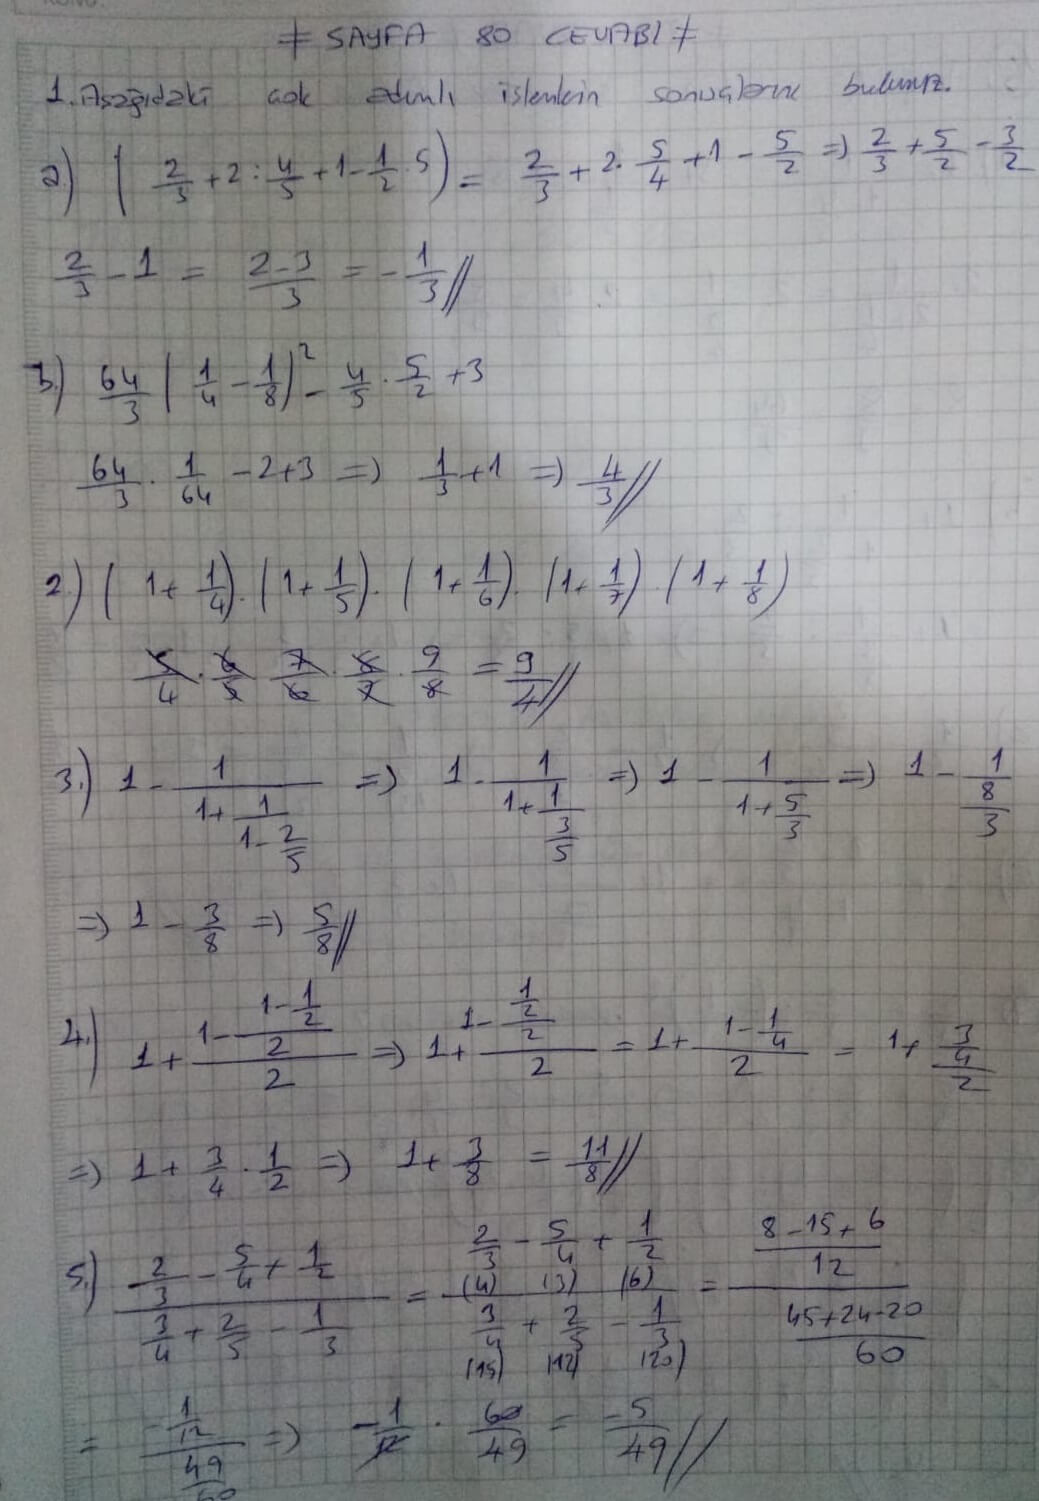 ≠ SAYFA 80 CEVABI ≠
1. Aşağıdaki çok adımlı işlemlerin sonuçlarını bulunuz.
a) ( 2/3 + 2 : 4/5 + 1 - 1/2 . 5 ) = 2/3 + 2 . 5/4 + 1 - 5/2 => 2/3 + 5/2 - 3/2
2/3 - 1 = (2-3)/3 = - 1/3 //
b) 64/3 ( 1/4 - 1/8 )² - 4/5 . 5/2 + 3
64/3 . 1/64 - 2 + 3 => 1/3 + 1 => 4/3 //
2.) ( 1 + 1/4 ) . ( 1 + 1/5 ) . ( 1 + 1/6 ) . ( 1 + 1/7 ) . ( 1 + 1/8 )
5/4 . 6/5 7/6 . 8/7 . 9/8 = 9/4 //
3.) 1 - 1/(1 + 1/(1 - 2/5)) => 1 - 1/(1 + 1/(3/5)) => 1 - 1/(1 + 5/3) => 1 - 1/(8/3)
=> 1 - 3/8 => 5/8 //
4.) 1 + (1 - (1 - 1/2)/2)/2 => 1 + (1 - (1/2)/2)/2 = 1 + (1 - 1/4)/2 = 1 + (3/4)/2
=> 1 + 3/4 . 1/2 => 1 + 3/8 = 11/8 //
5.) (2/3 - 5/4 + 1/2)/(3/4 + 2/5 - 1/3) = (2/3 - 5/4 + 1/2)/(3/4 + 2/5 - 1/3) = ((8 - 15 + 6)/12)/((45 + 24 - 20)/60)
(4) (3) (6)
(15) (12) (20)
= (-1/12)/(49/60) => - 1/12 . 60/49 = -5/49 //